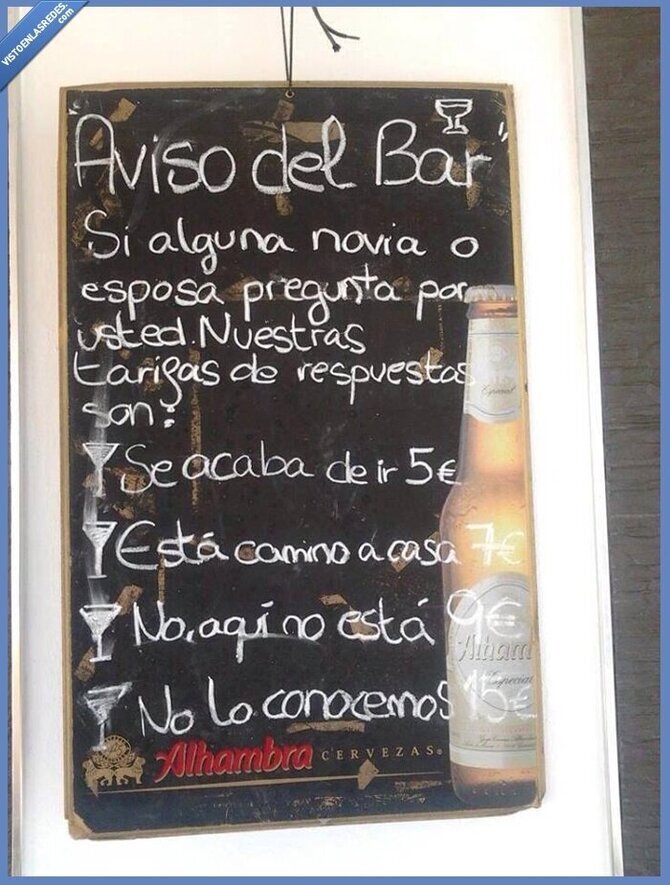 VISTOENLASREDES.
com
Aviso del Bar
Si alguna novia o
esposa pregunta por
usted. Nuestras
tarifas de respuestas
son:
Se acaba de ir 5€
Está camino a casa 7€
No, aquí no está 9€
No lo conocemos 15€
Alhambra CERVEZAS
Especial
Alham
Especial